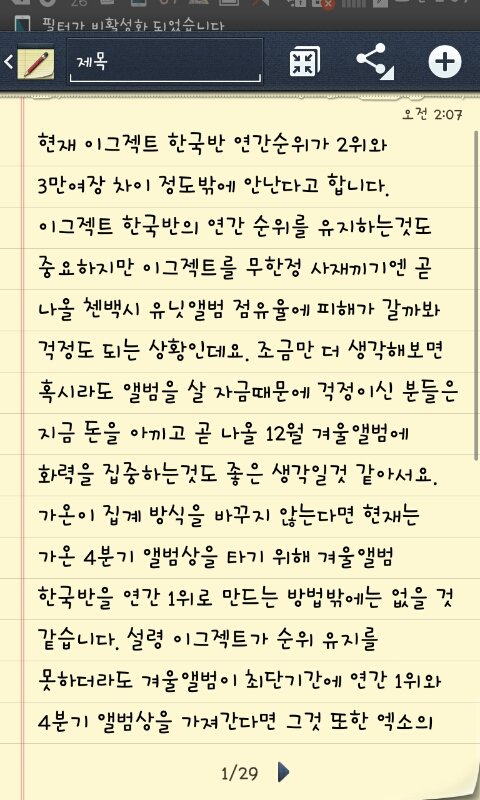 필터가 비활성화 되었습니다
제목
오전 2:07
현재 이그젝트 한국반 연간순위가 2위와
3만여장 차이 정도밖에 안난다고 합니다.
이그젝트 한국반의 연간 순위를 유지하는것도
중요하지만 이그젝트를 무한정 사재끼기엔 곧
나올 첸백시 유닛앨범 점유율에 피해가 갈까봐
걱정도 되는 상황인데요. 조금만 더 생각해보면
혹시라도 앨범을 살 자금때문에 걱정이신 분들은
지금 돈을 아끼고 곧 나올 12월 겨울앨범에
화력을 집중하는것도 좋은 생각일것 같아서요.
가온이 집계 방식을 바꾸지 않는다면 현재는
가온 4분기 앨범상을 타기 위해 겨울앨범
한국반을 연간 1위로 만드는 방법밖에는 없을 것
같습니다. 설령 이그젝트가 순위 유지를
못하더라도 겨울앨범이 최단기간에 연간 1위와
4분기 앨범상을 가져간다면 그것 또한 엑소의
1/29